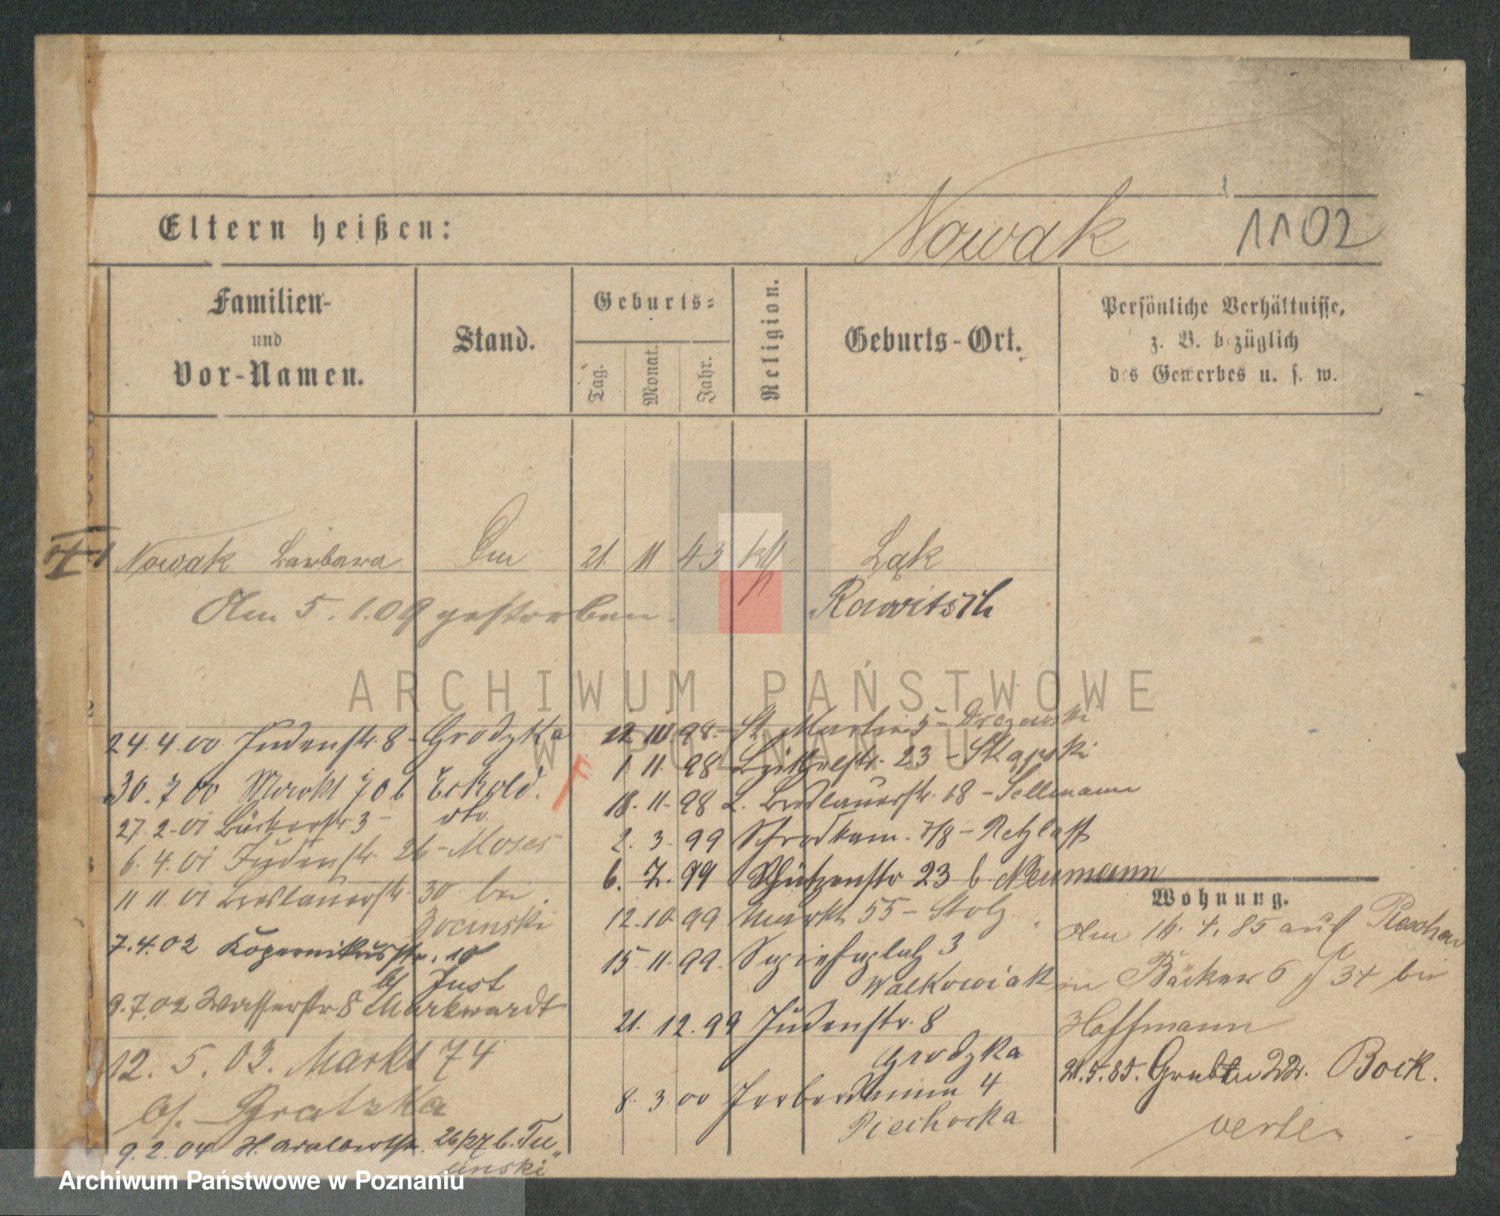 Nowak 1102
Eltern heißen:
Familien- und Vor-Namen.
Stand.
Geburts-
Tag. Monat. Jahr.
Religion.
Geburts-Ort.
Persönliche Verhältnisse, z. B. bezüglich des Gewerbes u. s. w.
Nowak Barbara 21 11 43 kth Łąk
Am 5.1.09 gestorben. Rawitsch
24.4.00 Judenstr. 8 - Grodzka
30.7 00 Markt 70 b Eckold.
27.2.01 3 - dto
6.4.01 Judenstr. 26 - Moses
11 11 01 Breslauerstr. 30 bei
7.4.02 Kopernikusstr. 10
b/ Just
9.7.02 Wasserstr 8 Markwardt
12.5.03. Markt 74
b/. Gratzka
9.2.04 St. Adalbertstr. 26/27 b.
12 11 98 - St. Martin 5 -
1. 11. 98 23 - Skapski
18. 11. 98 Breslauerstr. 18 - Sellmann
2. 3. 99 Schrodkam. 7/8 - Retzlaff
6. 7. 99 Schützenstr 23 b Neumann
12. 10. 99 Markt 55 - Stolz
15. 11. 99. Sapiehaplatz 3
Walkowiak
21. 12. 99 Judenstr. 8
Grodzka
8. 3. 00 4
Piechocka
Wohnung.
Am 16.4.85 auf
in Bäcker 34 bei
Hoffmann
21.5.85. Graben 22. Bock.
verte
ARCHIWUM PAŃSTWOWE
W POZNANIU
Archiwum Państwowe w Poznaniu